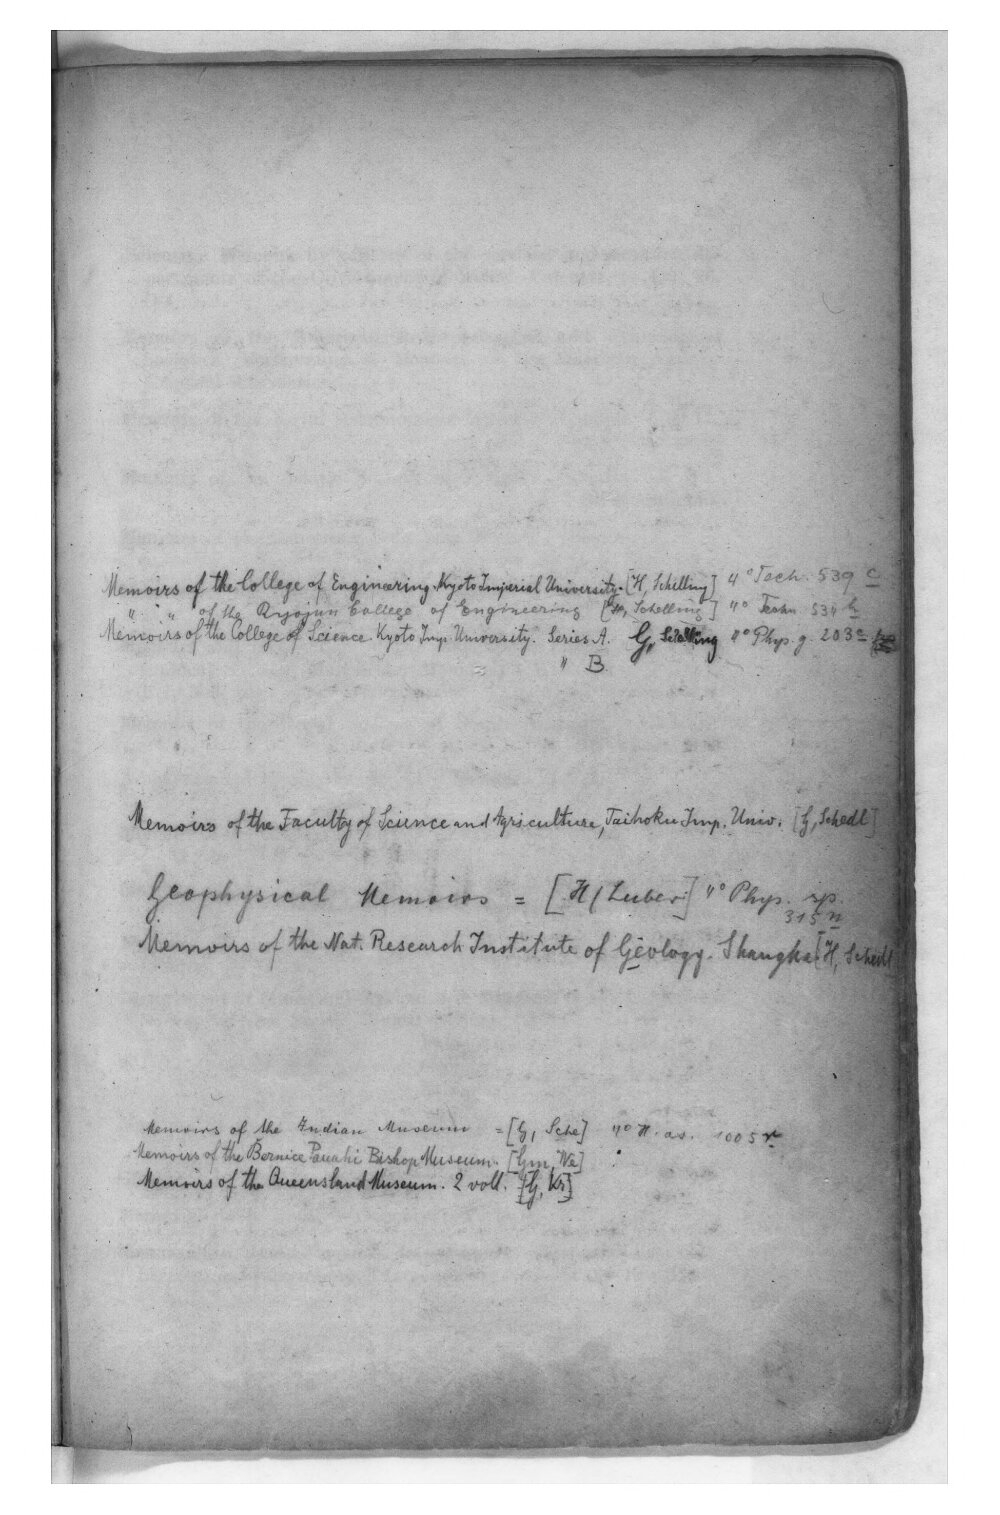 Memoirs of the College of Engineering. Kyoto Imperial University. [H, Schilling] 4° Tech. 539 c
" " of the Ryojun College of Engineering [H, Schelling] 4° Techn 534 h
Memoirs of the College of Science. Kyoto Imp. University. Series A. G, Schelling 4° Phys. g. 203 a
" B
Memoirs of the Faculty of Science and Agriculture, Taihoku Imp. Univ. [G, Schedl]
Geophysical Memoirs = [H, Luber] 4° Phys. sp.
315 n
Memoirs of the Nat. Research Institute of Geology. Shanghai [H, Schedl]
Memoirs of the Indian Museum = [G, Sche] 4° H. as. 1005 r
Memoirs of the Bernice Pauahi Bishop Museum. [Gm, We]
Memoirs of the Queensland Museum. 2 voll. [G, Kr]